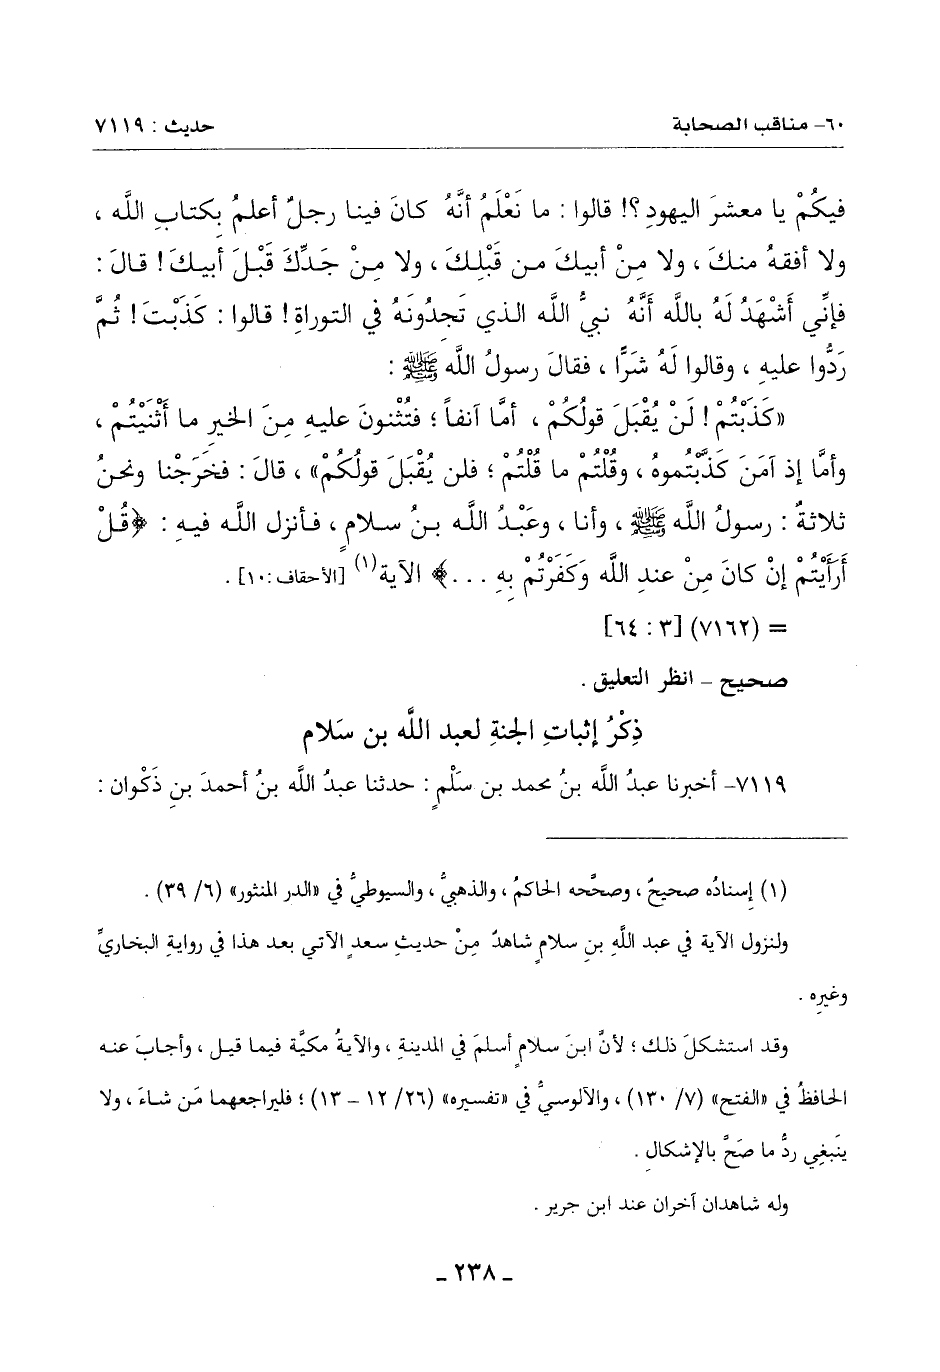 ٦٠- مناقب الصحابة حديث : ٧١١٩
فيكُمْ يا معشرَ اليهودِ؟! قالوا : ما نَعْلَمُ أنَّهُ كانَ فينا رجلٌ أعلمُ بِكتابِ اللَّه ،
ولا أفقهُ منكَ ، ولا مِنْ أبيكَ من قَبْلِكَ ، ولا مِنْ جَدِّكَ قَبْلَ أبيكَ! قالَ :
فإنِّي أَشْهَدُ لَهُ باللَّه أَنَّهُ نبيُّ اللَّه الذي تَجِدُونَهُ في التوراةِ! قالوا : كَذَبْتَ! ثُمَّ
رَدُّوا عليهِ ، وقالوا لَهُ شَرًّا ، فقالَ رسولُ اللَّه ﷺ :
«كَذَبْتُمْ! لَنْ يُقْبَلَ قولُكُمْ ، أمَّا آنفاً ؛ فتُثْنونَ عليهِ مِنَ الخيرِ ما أَثْنَيْتُمْ ،
وأمَّا إذ آمَنَ كَذَّبْتُموهُ ، وقُلْتُمْ ما قُلْتُمْ ؛ فلن يُقْبَلَ قولُكُمْ» ، قالَ : فخَرَجْنا ونحنُ
ثلاثةٌ : رسولُ اللَّه ﷺ ، وأنا ، وعَبْدُ اللَّه بنُ سلامٍ ، فأنزل اللَّه فيهِ : ﴿قُلْ
أَرَأَيْتُمْ إنْ كانَ مِنْ عندِ اللَّه وَكَفَرْتُمْ بِهِ ...﴾ الآية(١) [الأحقاف : ١٠] .
= (٧١٦٢) [٣ : ٦٤]
صحيح – انظر التعليق .
ذِكْرُ إثباتِ الجنةِ لعبد اللَّه بن سَلام
٧١١٩- أخبرنا عبدُ اللَّه بنُ محمد بن سَلْمٍ : حدثنا عبدُ اللَّه بنُ أحمدَ بنِ ذَكْوان :
(١) إسنادُه صحيحٌ ، وصحَّحه الحاكمُ ، والذهبيُّ ، والسيوطيُّ في «الدر المنثور» (٦/ ٣٩) .
ولنزول الآية في عبد اللَّهِ بنِ سلامٍ شاهدٌ مِنْ حديثِ سعدٍ الآتي بعد هذا في روايةِ البخاريِّ
وغيرِه .
وقد استشكلَ ذلك ؛ لأنَّ ابنَ سلامٍ أسلمَ في المدينةِ ، والآيةُ مكيَّة فيما قيل ، وأجابَ عنه
الحافظُ في «الفتح» (٧/ ١٣٠) ، والآلوسيُّ في «تفسيره» (٢٦/ ١٢ – ١٣) ؛ فليراجعهما مَن شاءَ ، ولا
ينَبغِي ردُّ ما صَحَّ بالإشكالِ .
وله شاهدان آخران عند ابن جرير .
- ٢٣٨ -